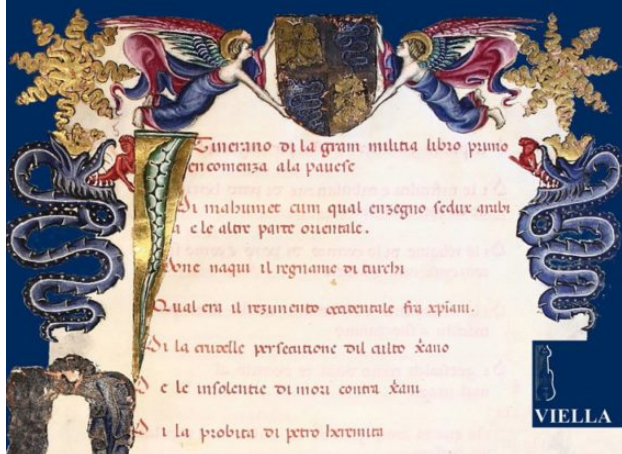 Itinerario di la gram militia libro primo
encomenza ala pavese
Di mahumet cum qual enzegno sedux arabi
a e le altre parte orientale.
Done naqui il regname di turchi
Qual era il rezimento occidentale fra xpiani.
Di la crudelle persecutione dil culto xano
e le insolentie di mori contra xani
i la probita di petro heremita
VIELLA